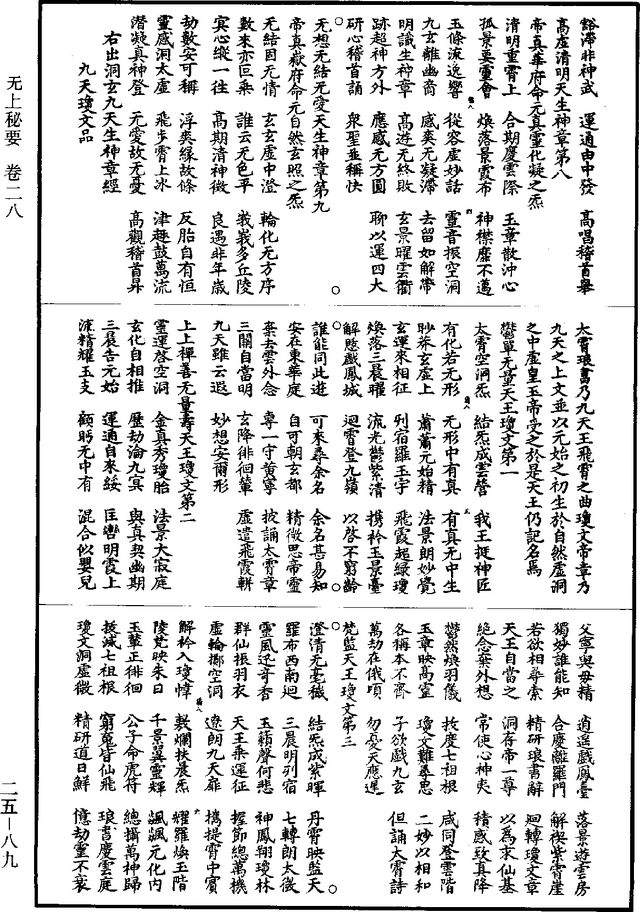 豁滯非神武　運通由中發　高唱稽首舉
高虛清明天生神章第八
帝真華府命元真靈化凝之炁
清明重霄上　合期慶雲際　玉章散沖心
孤景要靈會　煥落景霞布　神襟靡不邁
玉條流逸響　從容虛妙話　靈音振空洞
九玄離幽裔　感爽无凝滯　去留如解帶
明識生神章　高遊无終敗　玄景曜雲衢
跡超神方外　應感无方圓　聊以運四大
研心稽首誦　眾聖並稱快
无想无結无愛天生神章第九
帝真嶽府命元自然玄照之炁
无結固无情　玄玄虛中澄　輪化无方序
數來亦叵乘　誰云无色平　峩峩多丘陵
冥心縱一往　高期清神微　良遇非年歲
劫數安可稱　浮爽緣故條　反胎自有恒
靈感洞太虛　飛步霄上冰　津趣鼓萬流
潛凝真神登　无愛故无憂　高觀稽首昇
右出洞玄九天生神章經
九天瓊文品
太霄琅書乃九天王飛霄之曲瓊文帝章乃
九天之上文並以元始之初生於自然虛洞
之中虛皇玉帝受之於是天王仍記名焉
鬱單无量天王瓊文第一
太霄空洞炁　結炁成雲營　我王挺神匠
有化若无形　无形中有真　有真无中生
眇莽玄虛上　蕭蕭元始精　法景朗妙覺
玄運來相征　列宿羅玉宇　飛霞超綠瓊
煥落三晨曜　流光鬱紫清　攜衿玉景臺
解憩戲鳳城　迴霄登九嶺　以啓不窮齡
誰能同此遊　可來尋余名　余名甚易知
安在東華庭　自可朝玄都　精微思帝靈
棄去雲外念　專一守黃寧　披誦太霄章
三關自當明　玄降徘徊輦　虛遣飛霞軿
九天雖云遐　妙想安爾形
上上禪善无量壽天王瓊文第二
靈運啓空洞　金真秀瓊胎　法景大寂庭
玄化自相推　歷劫淪九冥　與真契幽期
三晨告元始　運通自來綏　匡轡明霞上
流精耀玉支　顧眄无中有　混合似嬰兒
父寧與母精　逍遥戲鳳臺　落景遊雲房
獨妙誰能知　合慶離羅門　解禊紫霄崖
若欲相尋索　精研琅書辭　迴轉瓊文章
天王自當之　洞存帝一尊　以為求仙基
絕念棄外想　常使心神夷　積感致真降
鬱然煥羽儀　拔度七祖根　咸同登雲階
玉章映高靈　瓊文難尋思　二妙以相和
各稱本不齊　子欲戲九玄　但誦大霄詩
萬劫在俄頃　勿憂天應遲
梵監天王瓊文第三
澄清无毫穢　結炁成紫暉　丹霄映藍天
羅布西南迴　三晨明列宿　七轉朗太微
靈風迅奇香　玉籟聲何悲　神鳳翔瓊林
群仙振羽衣　天王乘運征　握節總萬機
虛輪擲空洞　遼朗九天扉　攜提霄中賓
解衿入瓊幃　敷爛扶晨炁　耀羅煥玉階
陵梵映朱日　千景翼靈輝　颯颯元化內
玉輦正徘徊　公子命虎符　總攝萬神歸
拔滅七祖根　窮魂皆仙飛　琅書慶雲庭
瓊文洞虛微　精研道日鮮　億劫靈不衰
无上秘要　卷二八
二五—八九